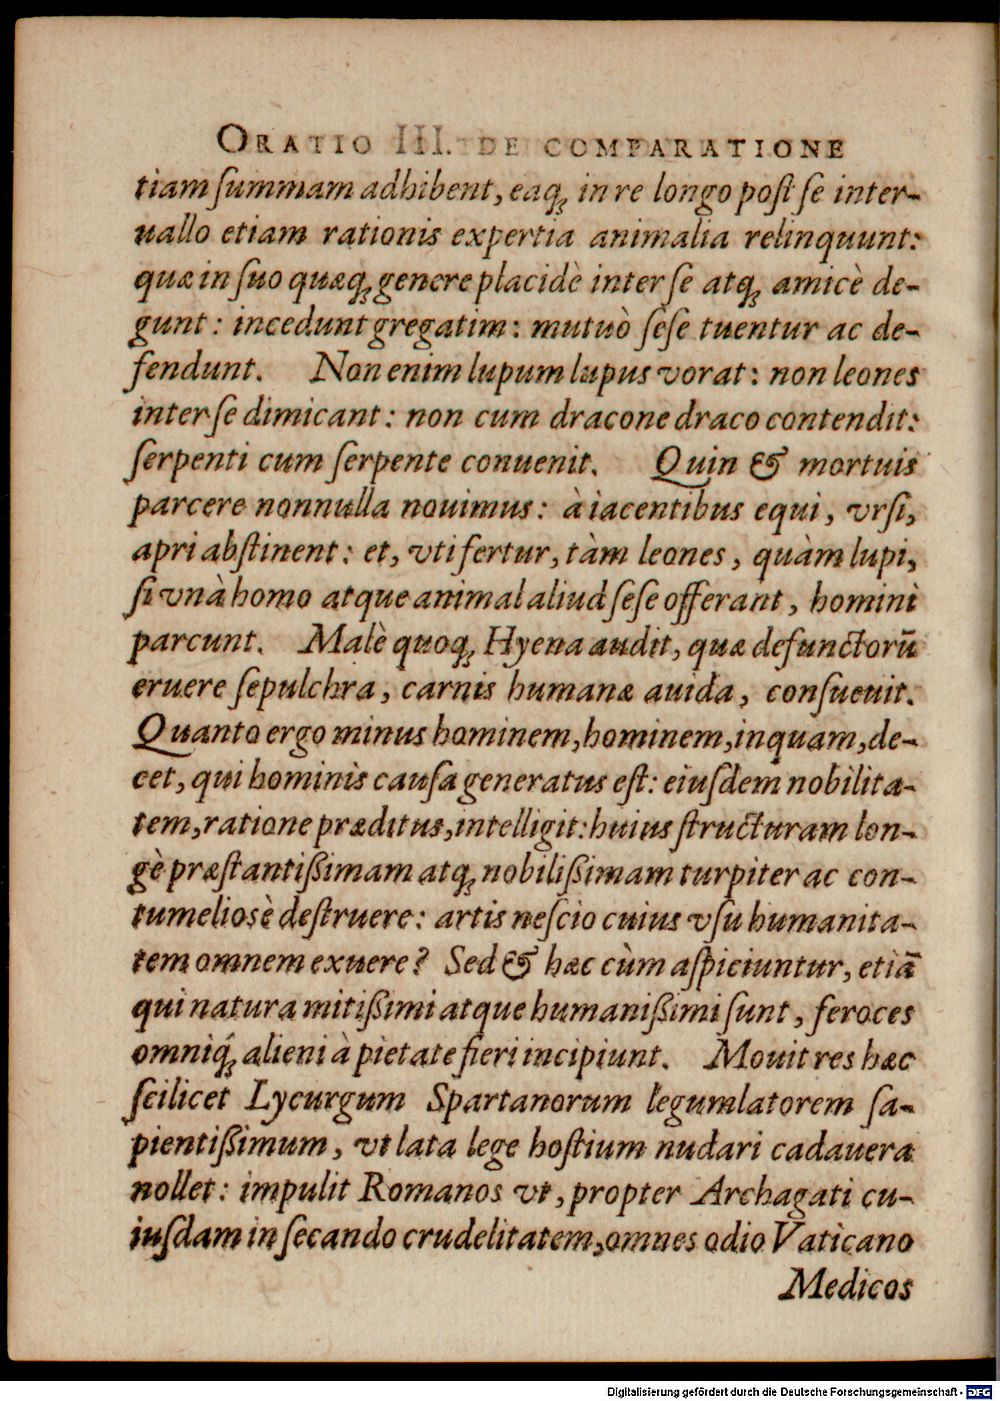 ORATIO III. DE COMPARATIONE
tiam ſummam adhibent, eaq; in re longo poſt ſe inter-
uallo etiam rationis expertia animalia relinquunt:
quæ in ſuo quæq; genere placidè inter ſe atq; amicè de-
gunt: incedunt gregatim: mutuò ſeſe tuentur ac de-
fendunt. Non enim lupum lupus vorat: non leones
inter ſe dimicant: non cum dracone draco contendit:
ſerpenti cum ſerpente conuenit. Quin & mortuis
parcere nonnulla nouimus: à iacentibus equi, vrſi,
apri abſtinent: et, vti fertur, tàm leones, quàm lupi,
ſi vnà homo atque animal aliud ſeſe offerant, homini
parcunt. Malè quoq; Hyena audit, quæ defunctorū
eruere ſepulchra, carnis humanæ auida, conſueuit.
Quanto ergo minus hominem, hominem, inquam, de-
cet, qui hominis cauſa generatus eſt: eiuſdem nobilita-
tem, ratione præditus, intelligit: huius ſtructuram lon-
gè præſtantißimam atq; nobilißimam turpiter ac con-
tumeliosè deſtruere: artis neſcio cuius vſu humanita-
tem omnem exuere? Sed & hæc cùm aſpiciuntur, etiā
qui natura mitißimi atque humanißimi ſunt, feroces
omniq́; alieni à pietate fieri incipiunt. Mouit res hæc
ſcilicet Lycurgum Spartanorum legumlatorem ſa-
pientißimum, vt lata lege hoſtium nudari cadauera
nollet: impulit Romanos vt, propter Archagati cu-
iuſdam in ſecando crudelitatem, omnes odio Vaticano
Medicos
Digitalisierung gefördert durch die Deutsche Forschungsgemeinschaft - DFG